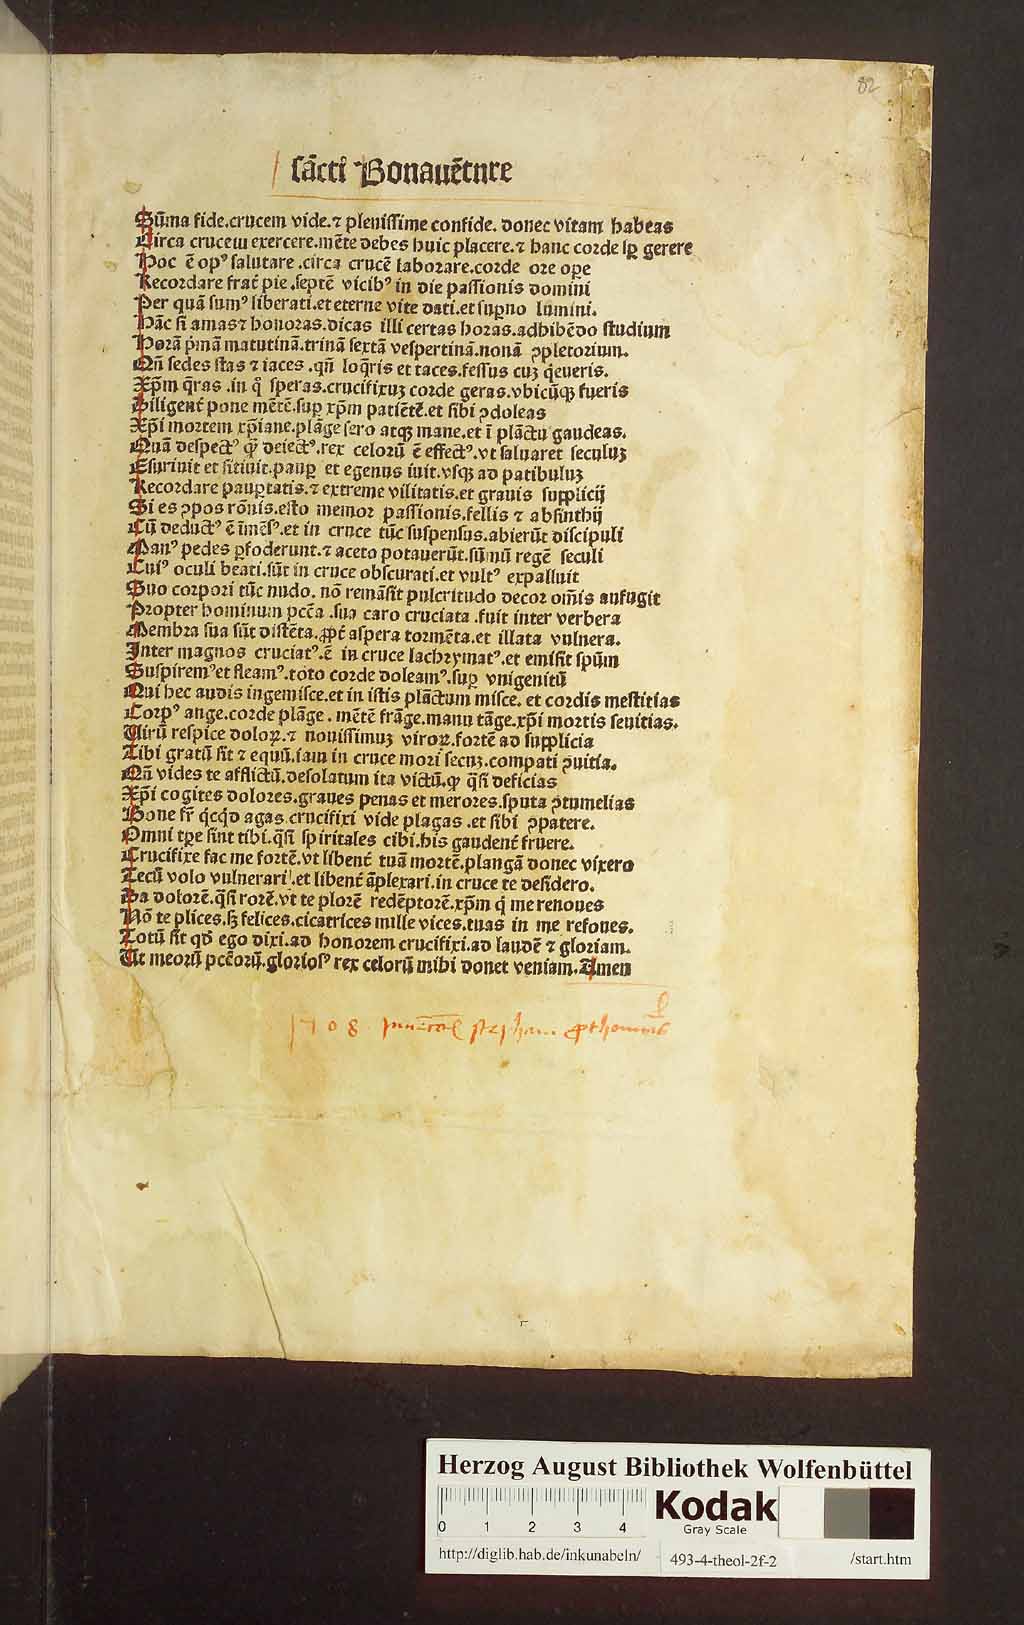 82
sācti Bonauētnre
Sūma fide.crucem vide.⁊ plenissime confide. donec vitam habeas
Circa crucem exercere.mēte debes huic placere.⁊ hanc corde sꝑ gerere
Hoc ē opꝰ salutare .circa crucē laborare.corde ore oꝑe
Recordare frat̄ pie .septē vicibꝰ in die passionis domini
Per quā sumꝰ liberati.et eterne vite dati.et suꝑno lumini.
Hāc si amas ⁊ honoras.dicas illi certas horas.adhibēdo studium
Horā p̄mā matutinā.trinā sextā vespertinā.nonā ꝯpletorium.
Qn̄ sedes stas ⁊ iaces .qn̄ loq̄ris et taces.fessus cuꝫ q̇eueris.
Xp̄m q̄ras .in q̊ speras.crucifixuꝫ corde geras.vbicūqꝫ fueris
Diligent̄ pone mētē.suꝑ xp̄m patiētē.et sibi ꝯdoleas
Xp̄i mortem xp̄iane.plāge sero atqꝫ mane.et ī plāctu gaudeas.
Quā despectꝰ q̄ꝫ deiectꝰ.rex celorū ē effectꝰ.vt saluaret seculuꝫ
Esuriuit et sitiuit.pauꝑ et egenus iuit.vsqꝫ ad patibuluꝫ
Recordare pauꝑtatis.⁊ extreme vilitatis.et grauis supplicij
Si es ꝯpos rōnis.esto memor passionis.fellis ⁊ absinthij
Cū deductꝰ ē īmēsꝰ.et in cruce tūc suspensus.abierūt discipuli
Manꝰ pedes ꝑfoderunt.⁊ aceto potauerūt.sūmū regē seculi
Cuiꝰ oculi beati.sūt in cruce obscurati.et vultꝰ expalluit
Suo corpori tūc nudo. nō remāsit pulcritudo decor om̄is aufugit
Propter hominum pcc̄a .sua caro cruciata .fuit inter verbera
Membra sua sūt distēta.ꝓpt̄ aspera tormēta.et illata vulnera.
Inter magnos cruciatꝰ.ē in cruce lachrymatꝰ.et emisit sp̄um
Suspiremꝰ et fleamꝰ.toto corde doleamꝰ.suꝑ vnigenitū
Qui hec audis ingemisce.et in istis plāctum misce. et cordis mestitias
Corpꝰ ange.corde plāge . mētē frāge.manu tāge.xp̄i mortis seuitias.
Uirū respice doloꝝ.⁊ nouissimuꝫ viroꝝ.fortē ad supplicia
Tibi gratū sit ⁊ equū.iam in cruce mori secuꝫ.compati ꝯuitia.
Qn̄ vides te afflictū.desolatum ita victū.qꝫ q̄si deficias
Xp̄i cogites dolores.graues penas et merores.sputa ꝯtumelias
Bone fr̄ q̇cq̇d agas crucifixi vide plagas .et sibi ꝯpatere.
Omni tꝑe sint tibi.q̄si spiritales cibi.his gaudent̄ fruere.
Crucifixe fac me fortē.vt libent̄ tuā mortē.plangā donec vixero
Tecū volo vulnerari .et libent̄ āplexari.in cruce te desidero.
Da dolorē.q̄si rorē.vt te plorē redēptorē.xp̄m q̇ me renoues
Nō te plices.sꝫ felices.cicatrices mille vices.tuas in me refoues.
Totū sit qd̄ ego dixi.ad honorem crucifixi.ad laudē ⁊ gloriam.
Ut meorū pcc̄orū.gloriosꝰ rex celorū mihi donet veniam.Amen
Herzog August Bibliothek Wolfenbüttel
0 1 2 3 4
Kodak
Gray Scale
http://diglib.hab.de/inkunabeln/ 493-4-theol-2f-2 /start.htm